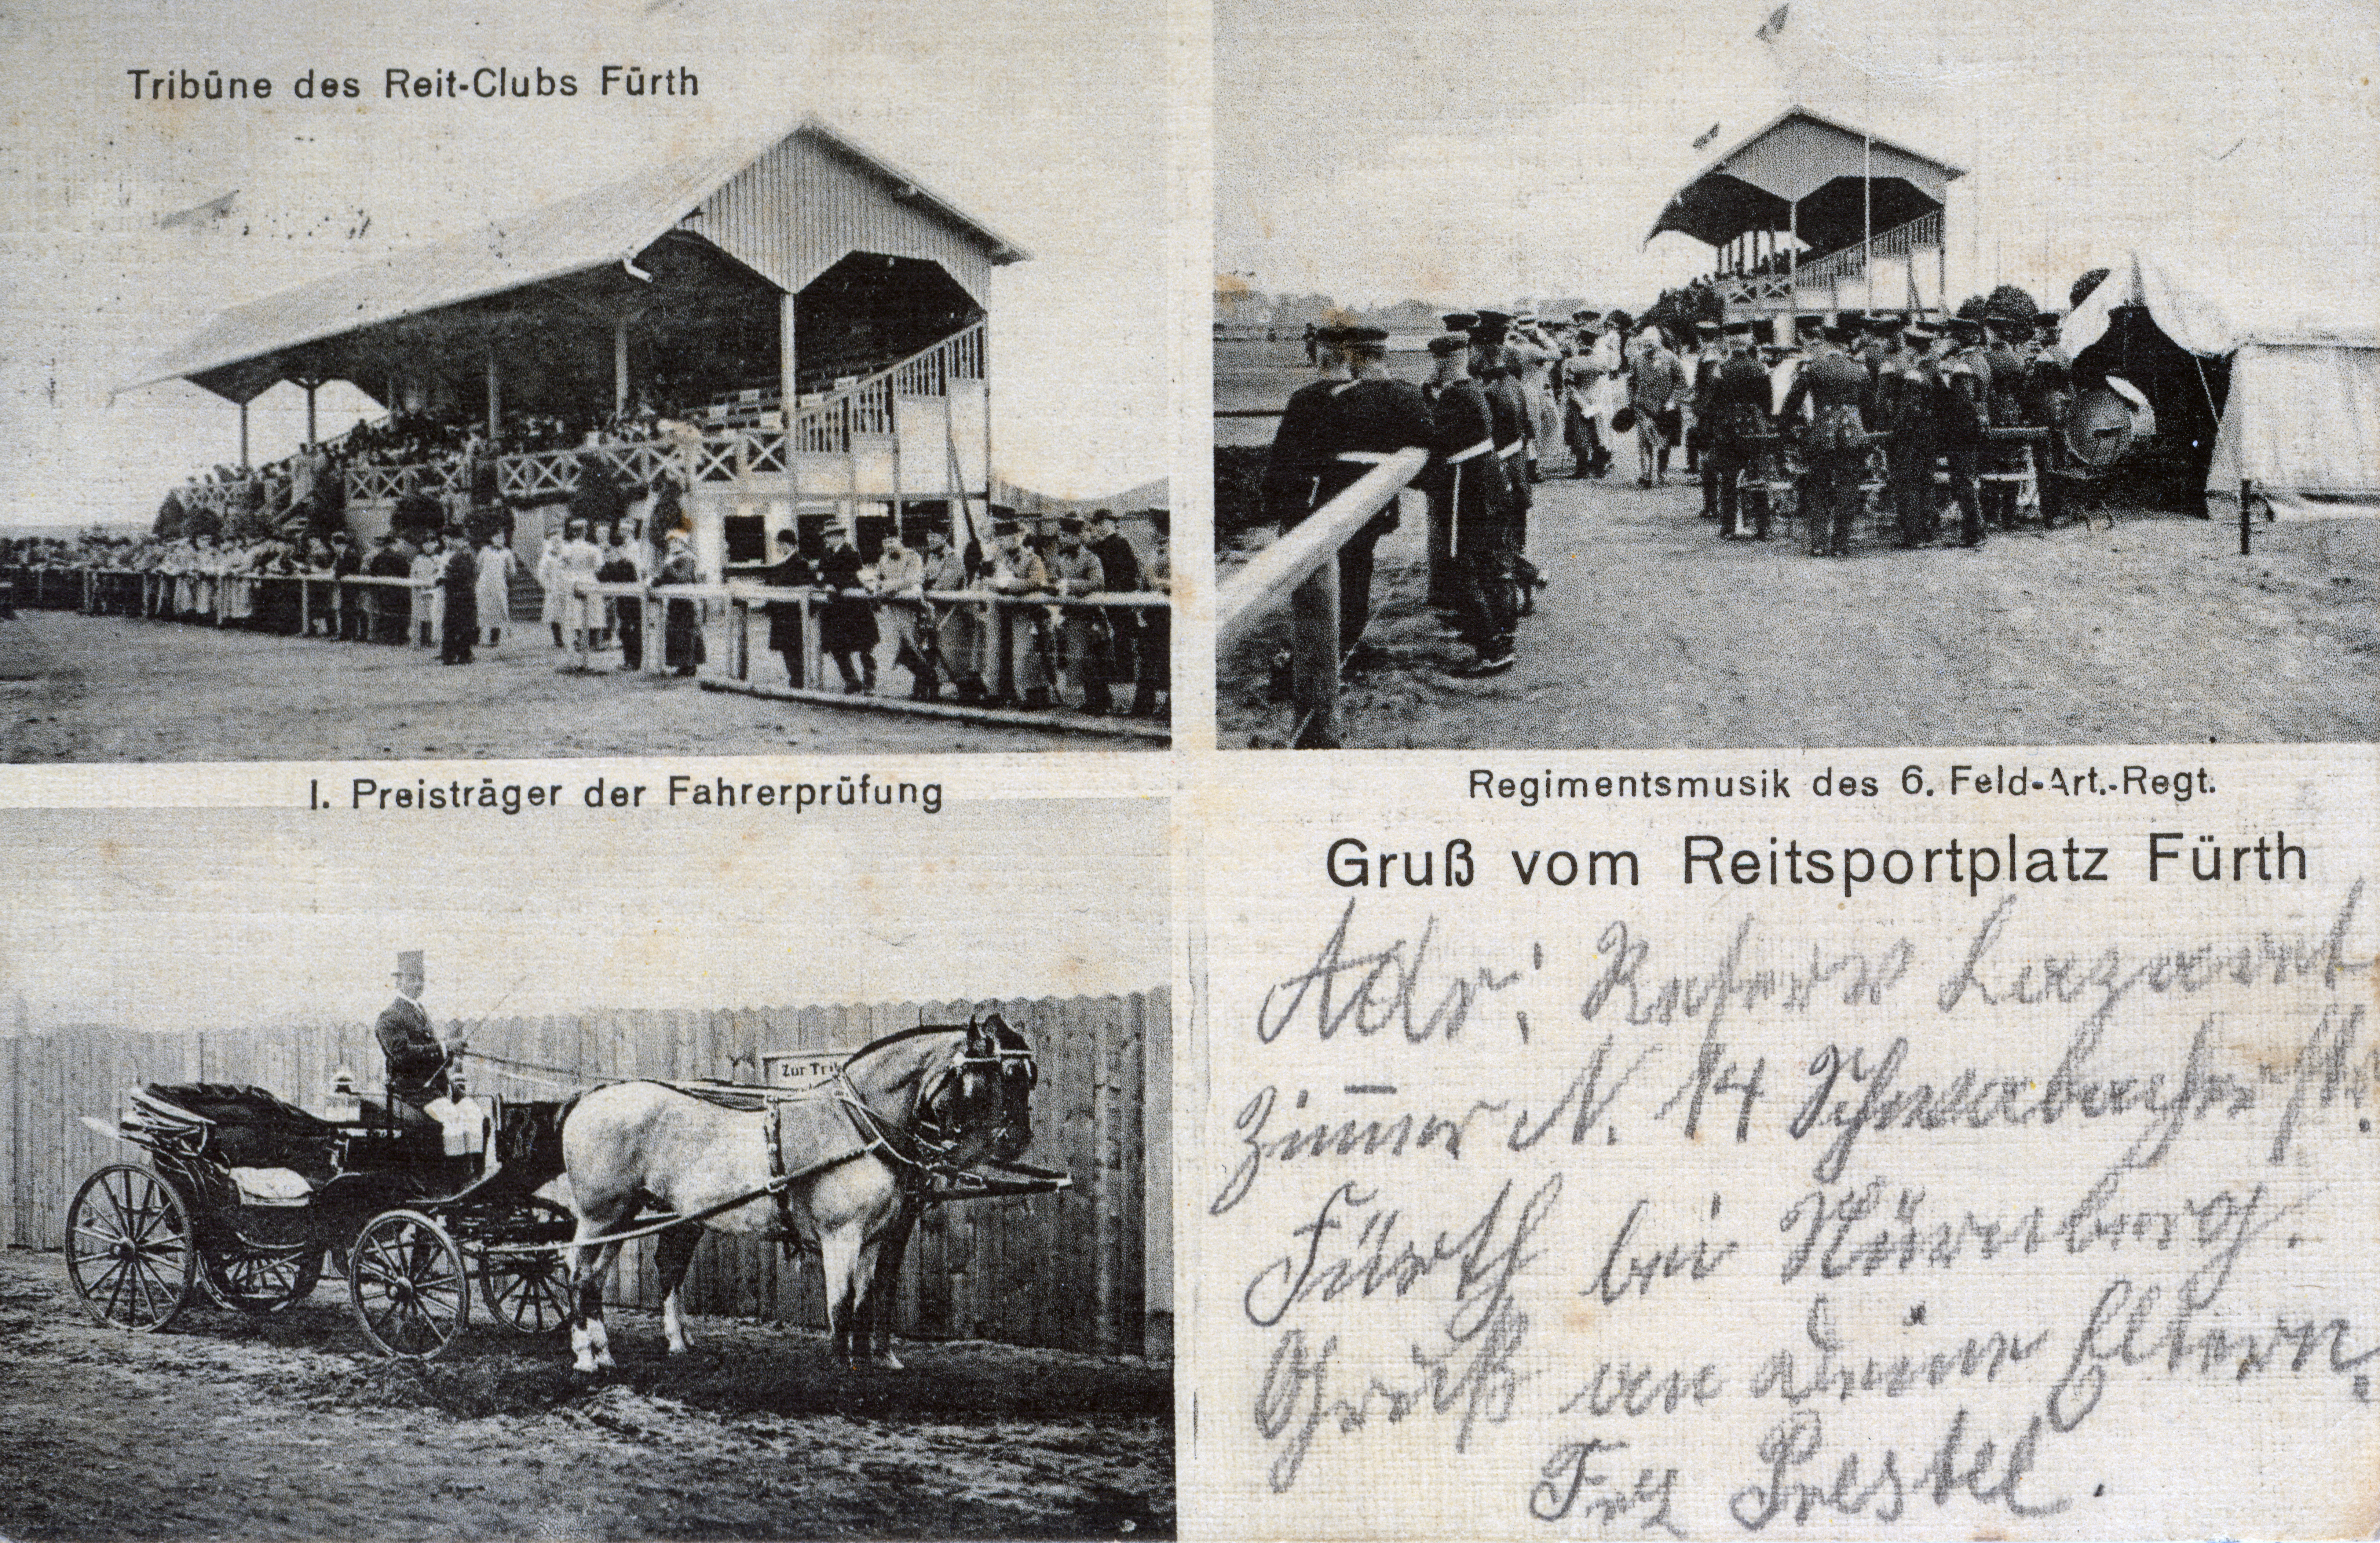 Tribüne des Reit-Clubs Fürth
I. Preisträger der Fahrerprüfung
Regimentsmusik des 6. Feld-Art.-Regt.
Zur Tri
Gruß vom Reitsportplatz Fürth
Adr: Reserve Lazarett
Zim̅er N. 14 Schwabacherstr.
Fürth bei Nürnberg.
Gruß an deine Eltern.
Prestel.